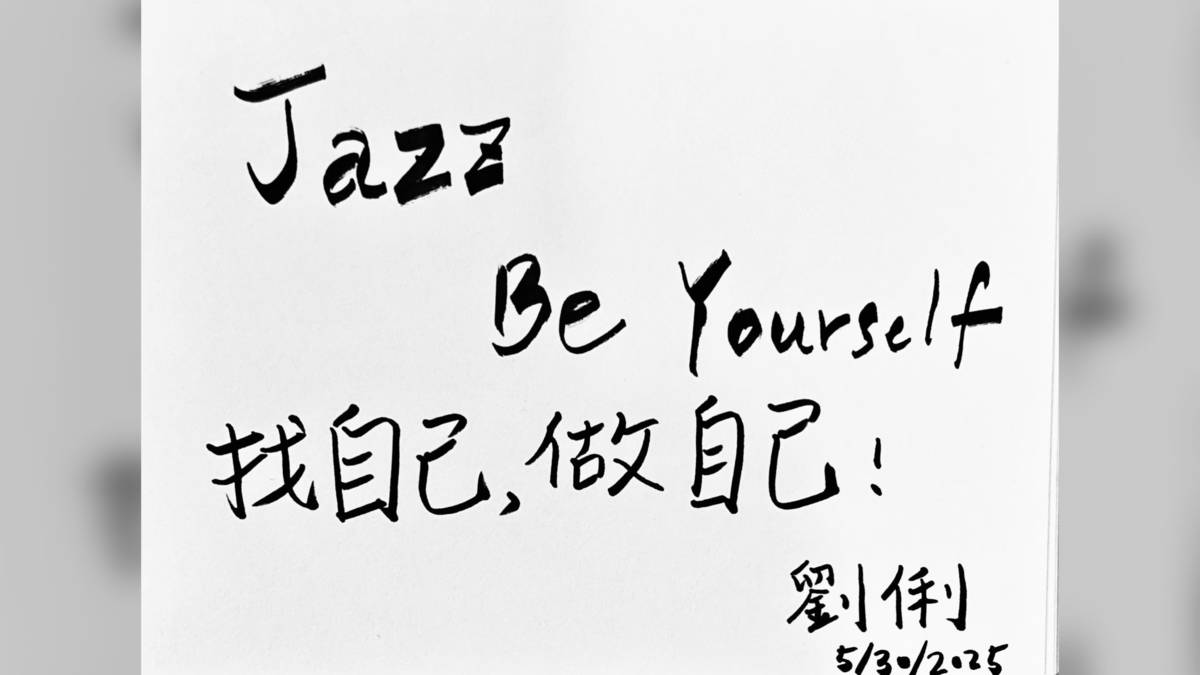 Jazz
Be Yourself
找自己,做自己!
劉俐
5/30/2025